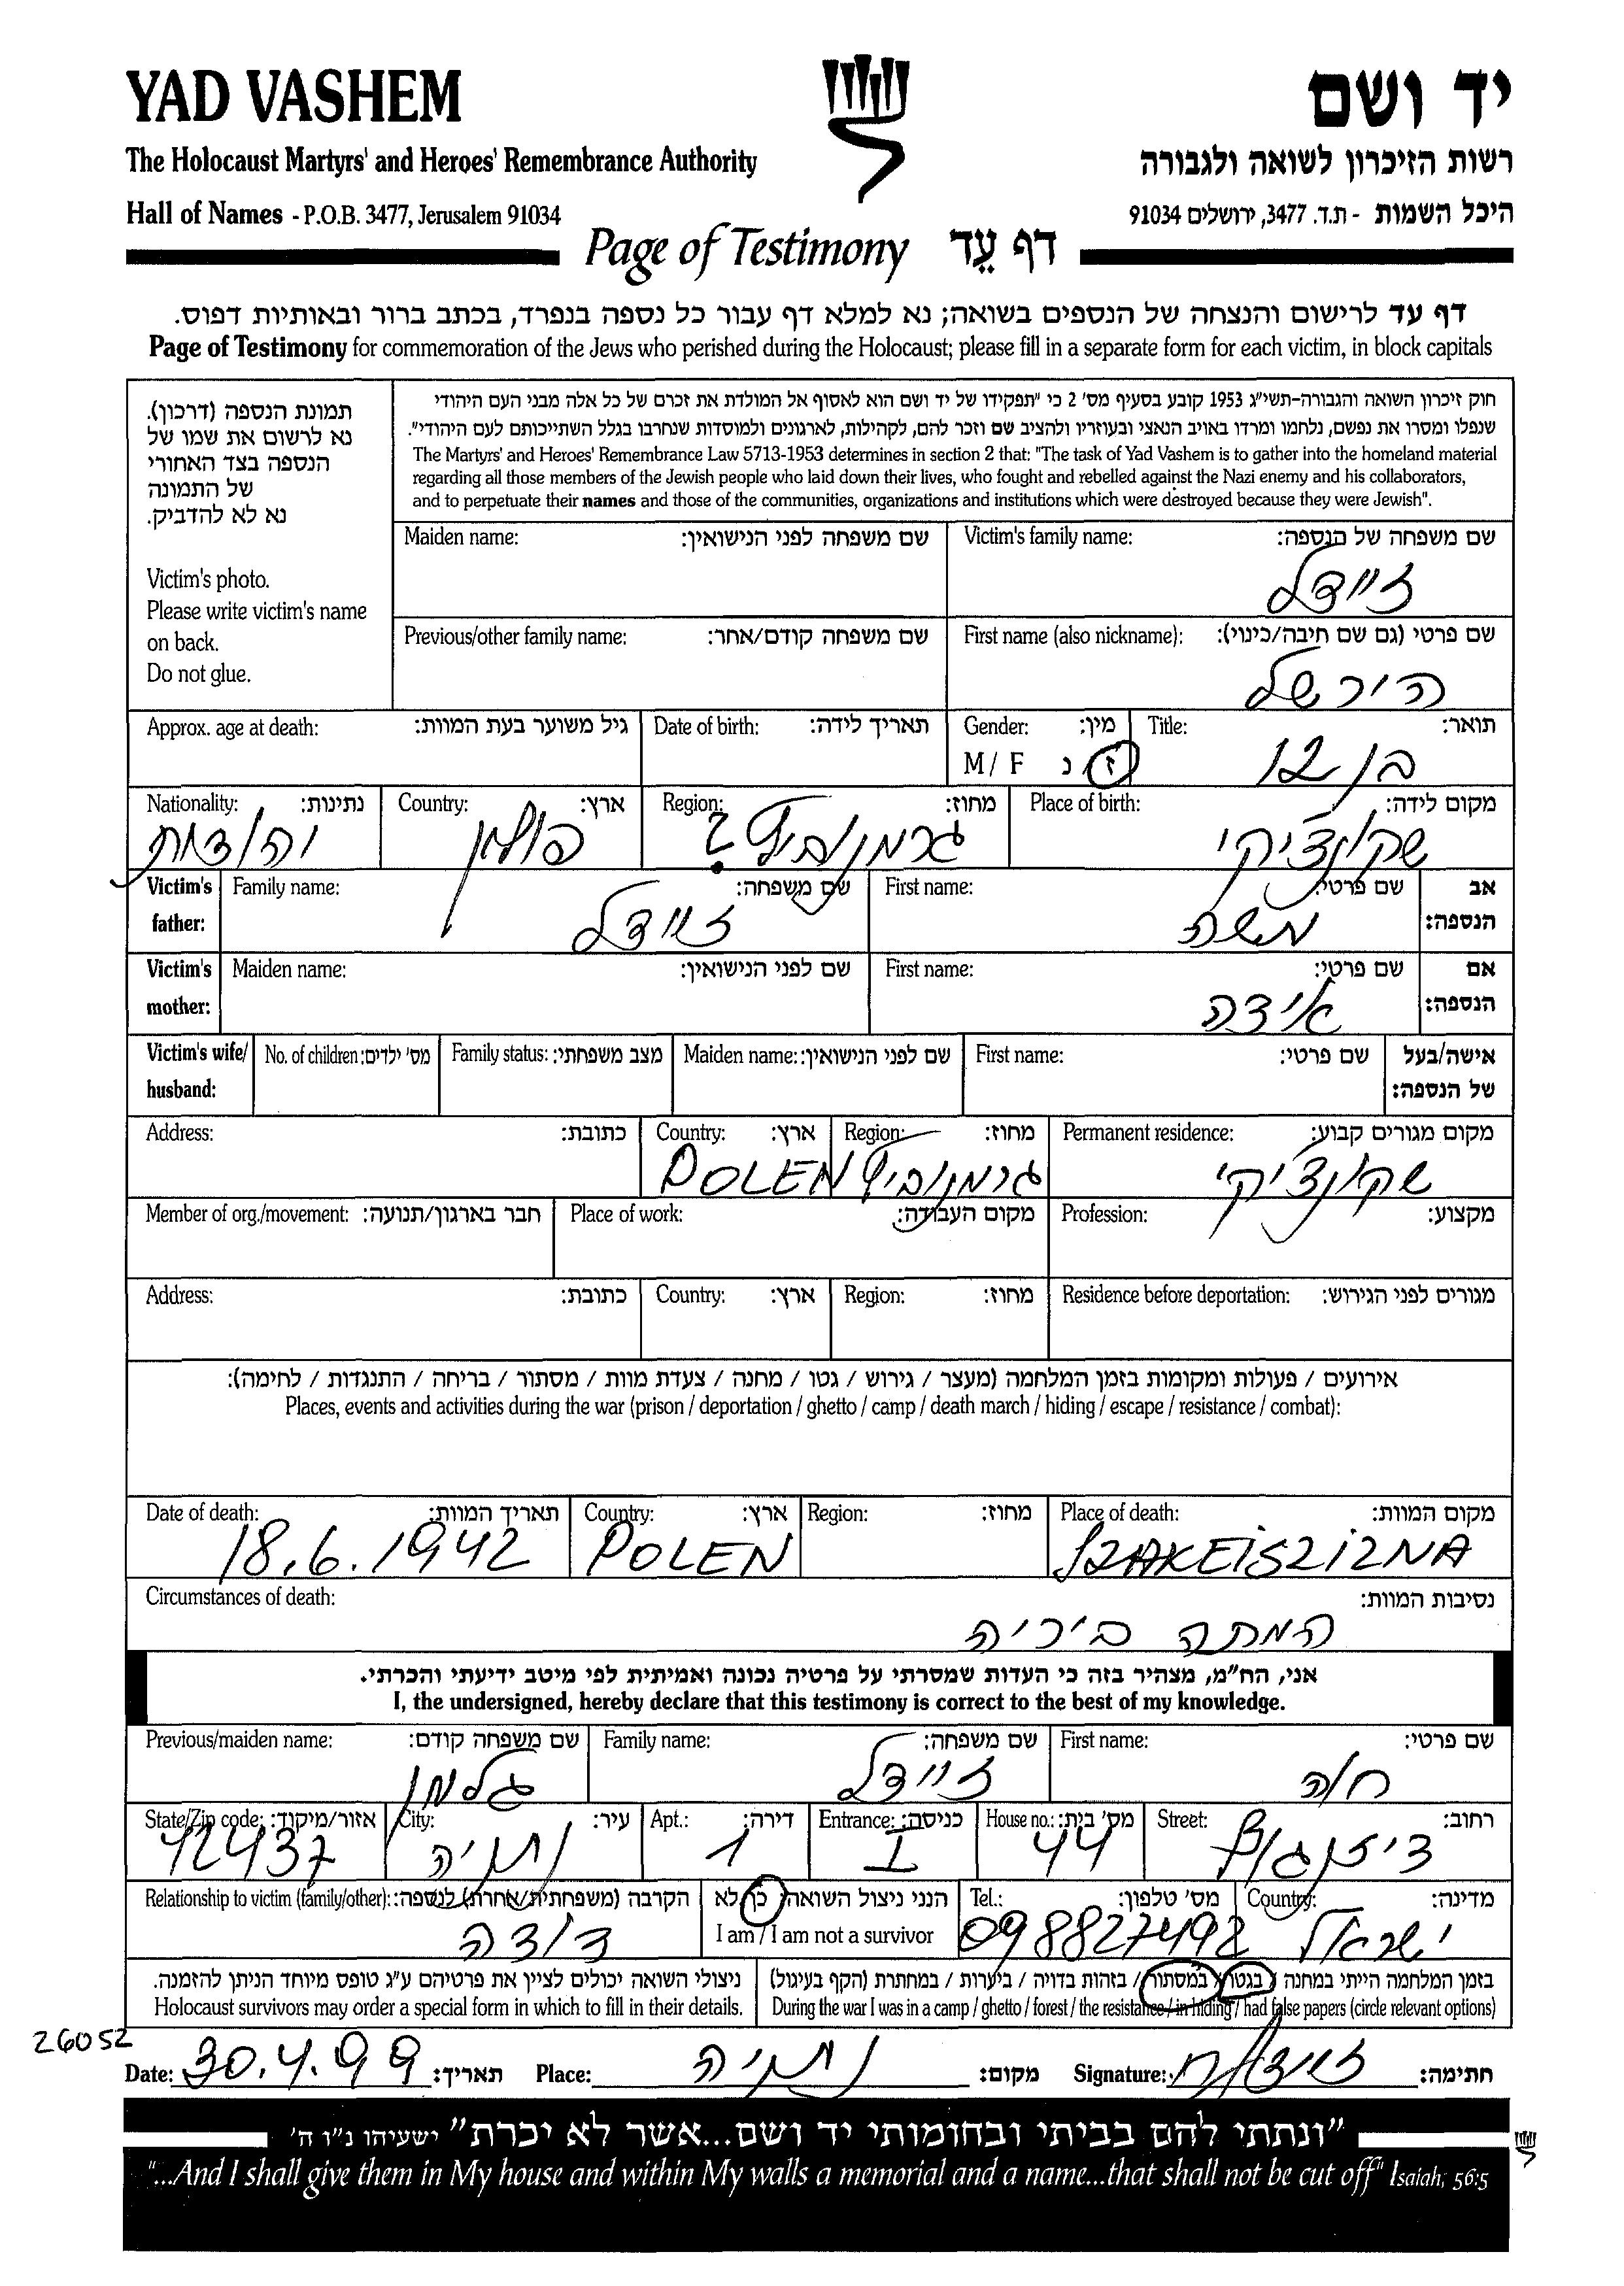 YAD VASHEM
יד ושם
The Holocaust Martyrs' and Heroes' Remembrance Authority
רשות הזיכרון לשואה ולגבורה
Hall of Names - P.O.B. 3477, Jerusalem 91034
היכל השמות - ת.ד. 3477, ירושלים 91034
Page of Testimony דף עֵד
דף עד לרישום והנצחה של הנספים בשואה; נא למלא דף עבור כל נספה בנפרד, בכתב ברור ובאותיות דפוס.
Page of Testimony for commemoration of the Jews who perished during the Holocaust; please fill in a separate form for each victim, in block capitals
תמונת הנספה (דרכון).
נא לרשום את שמו של
הנספה בצד האחורי
של התמונה
נא לא להדביק.
Victim's photo.
Please write victim's name
on back.
Do not glue.
חוק זיכרון השואה והגבורה-תשי"ג 1953 קובע בסעיף מס' 2 כי "תפקידו של יד ושם הוא לאסוף אל המולדת את זכרם של כל אלה מבני העם היהודי
שנפלו ומסרו את נפשם, נלחמו ומרדו באויב הנאצי ובעוזריו ולהציב שם וזכר להם, לקהילות, לארגונים ולמוסדות שנחרבו בגלל השתייכותם לעם היהודי".
The Martyrs' and Heroes' Remembrance Law 5713-1953 determines in section 2 that: "The task of Yad Vashem is to gather into the homeland material
regarding all those members of the Jewish people who laid down their lives, who fought and rebelled against the Nazi enemy and his collaborators,
and to perpetuate their names and those of the communities, organizations and institutions which were destroyed because they were Jewish".
Victim's family name: שם משפחה של הנספה:
זיידל
Maiden name: שם משפחה לפני הנישואין:
First name (also nickname): שם פרטי (גם שם חיבה/כינוי):
הירשל
Previous/other family name: שם משפחה קודם/אחר:
Title: תואר:
בן 12
Gender: מין:
M / F ז / נ
Date of birth: תאריך לידה:
Approx. age at death: גיל משוער בעת המוות:
Place of birth: מקום לידה:
Region: מחוז:
Country: ארץ:
פולין
Nationality: נתינות:
יהודית
Victim's father: אב הנספה:
First name: שם פרטי:
משה
Family name: שם משפחה:
זיידל
Victim's mother: אם הנספה:
First name: שם פרטי:
אידה
Maiden name: שם לפני הנישואין:
Victim's wife/ husband: אישה/בעל של הנספה:
First name: שם פרטי:
Maiden name: שם לפני הנישואין:
Family status: מצב משפחתי:
No. of children: מס' ילדים:
Permanent residence: מקום מגורים קבוע:
Region: מחוז:
Country: ארץ:
POLEN
Address: כתובת:
Profession: מקצוע:
Place of work: מקום העבודה:
Member of org./movement: חבר בארגון/תנועה:
Residence before deportation: מגורים לפני הגירוש:
Region: מחוז:
Country: ארץ:
Address: כתובת:
אירועים / פעולות ומקומות בזמן המלחמה (מעצר / גירוש / גטו / מחנה / צעדת מוות / מסתור / בריחה / התנגדות / לחימה):
Places, events and activities during the war (prison / deportation / ghetto / camp / death march / hiding / escape / resistance / combat):
Place of death: מקום המוות:
Region: מחוז:
Country: ארץ:
POLEN
Date of death: תאריך המוות:
18.6.1942
Circumstances of death: נסיבות המוות:
המתה ביריה
אני, הח"מ, מצהיר בזה כי העדות שמסרתי על פרטיה נכונה ואמיתית לפי מיטב ידיעתי והכרתי.
I, the undersigned, hereby declare that this testimony is correct to the best of my knowledge.
First name: שם פרטי:
חוה
Family name: שם משפחה:
זיידל
Previous/maiden name: שם משפחה קודם:
גלמן
Street: רחוב:
דיזנגוף
House no.: מס' בית:
44
Entrance: כניסה:
I
Apt.: דירה:
1
City: עיר:
נתניה
State/Zip code: אזור/מיקוד:
42437
Country: מדינה:
ישראל
Tel.: מס' טלפון:
098827492
הנני ניצול השואה: כן/לא
I am / I am not a survivor
Relationship to victim (family/other): הקרבה (משפחתית/אחרת) לנספה:
דודה
בזמן המלחמה הייתי במחנה / בגטו / במסתור / בזהות בדויה / ביערות / במחתרת (הקף בעיגול)
During the war I was in a camp / ghetto / forest / the resistance / in hiding / had false papers (circle relevant options)
ניצולי השואה יכולים לציין את פרטיהם ע"ג טופס מיוחד הניתן להזמנה.
Holocaust survivors may order a special form in which to fill in their details.
26052
Date: 30.4.99 תאריך: Place: נתניה מקום: Signature: חתימה:
"ונתתי להם בביתי ובחומותי יד ושם...אשר לא יכרת" ישעיהו נ"ו ה'
"...And I shall give them in My house and within My walls a memorial and a name...that shall not be cut off" Isaiah, 56:5